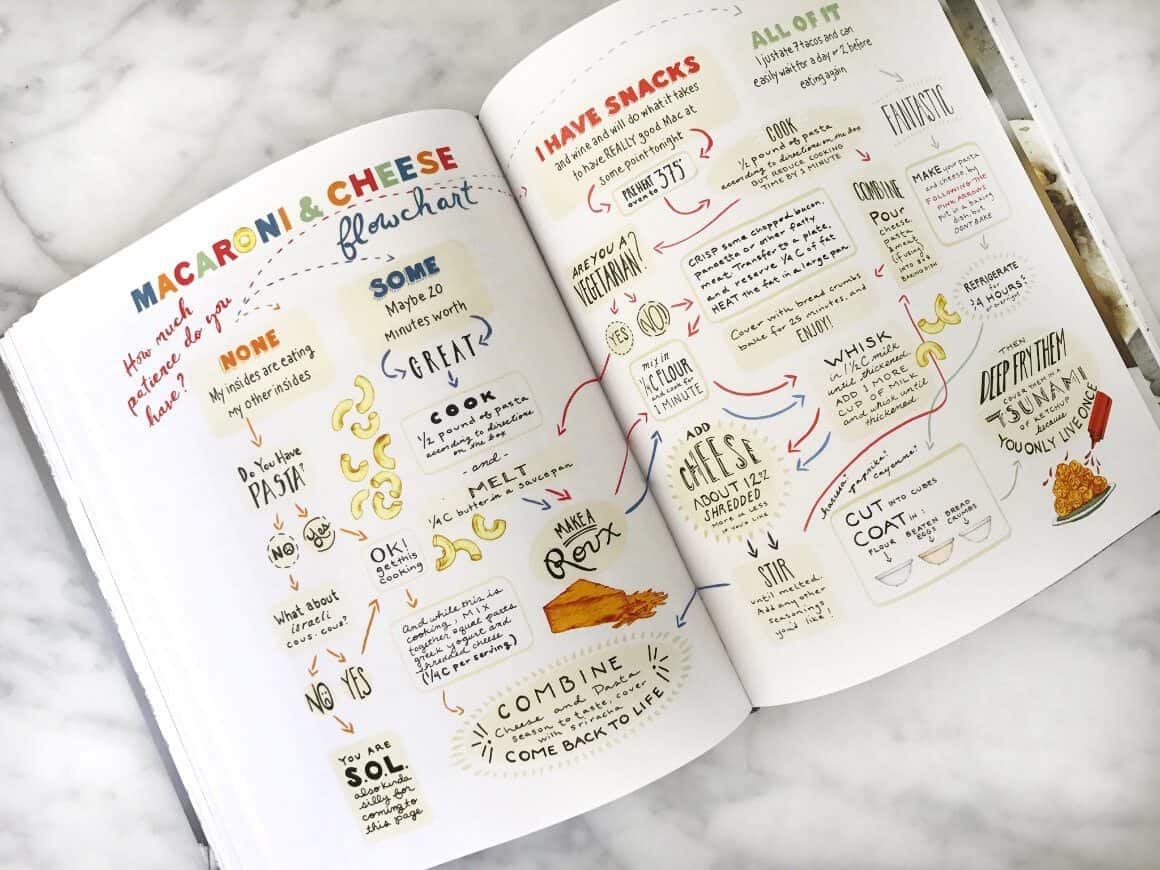 MACARONI & CHEESE
flowchart
How much
patience do you
have?
NONE
My insides are eating
my other insides
Do You Have
PASTA?
NO
yes
What about
israeli
cous.cous?
NO
YES
YOU ARE
S.O.L.
also kinda
silly for
coming to
this page
OK!
get this
cooking
And while this is
cooking, MIX
together equal parts
greek yogurt and
shredded cheese
(1/4 C per serving)
SOME
Maybe 20
Minutes worth
GREAT
COOK
1/2 pound of pasta
according to directions
on the box
-and-
MELT
1/4 C butter in a saucepan
MAKE A
ROUX
COMBINE
Cheese and Pasta
season to taste, cover
with sriracha
COME BACK TO LIFE
I HAVE SNACKS
and wine and will do what it takes
to have REALLY good Mac at
some point tonight
PREHEAT
oven to 375°
COOK
1/2 pound of pasta
according to directions on the box
BUT REDUCE COOKING
TIME BY 1 MINUTE
ARE YOU A
VEGETARIAN?
YES
NO!
CRISP some chopped bacon,
pancetta or other fatty
meat. Transfer to a plate,
and reserve 1/4 C of fat
HEAT the fat in a large pan.
mix in
1/4 C FLOUR
and cook for
1 MINUTE
Cover with bread crumbs
bake for 25 minutes, and
ENJOY!
COMBINE
POUR
cheese,
pasta
& meat
(if using)
INTO 8x8
BAKING DISH
WHISK
in 1 1/2 C milk
until thickened.
ADD 1 MORE
CUP OF MILK
and whisk until
thickened
ADD
CHEESE
ABOUT 12 OZ
SHREDDED
more or less
if you like
STIR
until melted.
Add any other
seasonings
you'd like!
"harissa" "paprika" "cayenne"
ALL OF IT
I just ate 7 tacos and can
easily wait for a day or 2 before
eating again
FANTASTIC
MAKE your pasta
and cheese, by
FOLLOWING THE
PINK ARROWS
put in a baking
dish but
DON'T BAKE
REFRIGERATE
for
4 HOURS
or overnight
CUT INTO CUBES
COAT in:
FLOUR BEATEN EGGS BREAD CRUMBS
THEN
DEEP FRY THEM
COVER THEM IN A
TSUNAMI
OF KETCHUP
because
YOU ONLY LIVE ONCE